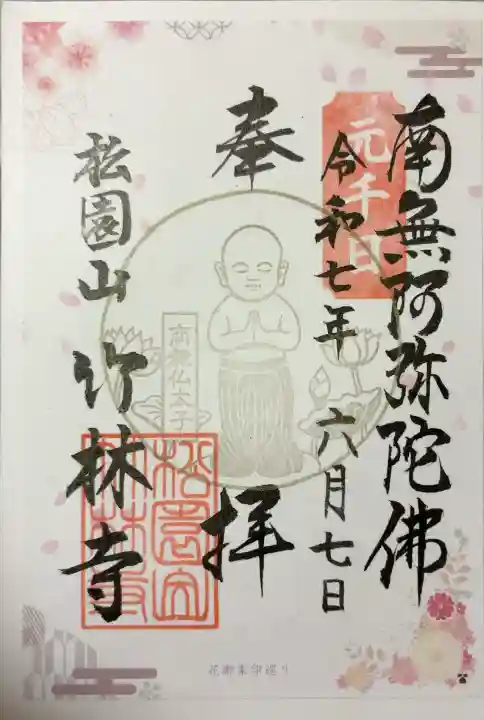 南無阿弥陀佛
元千日
令和七年 六月七日
奉 拝
南無仏太子
松園山 竹林寺
松園山
竹林寺
花御朱印巡り